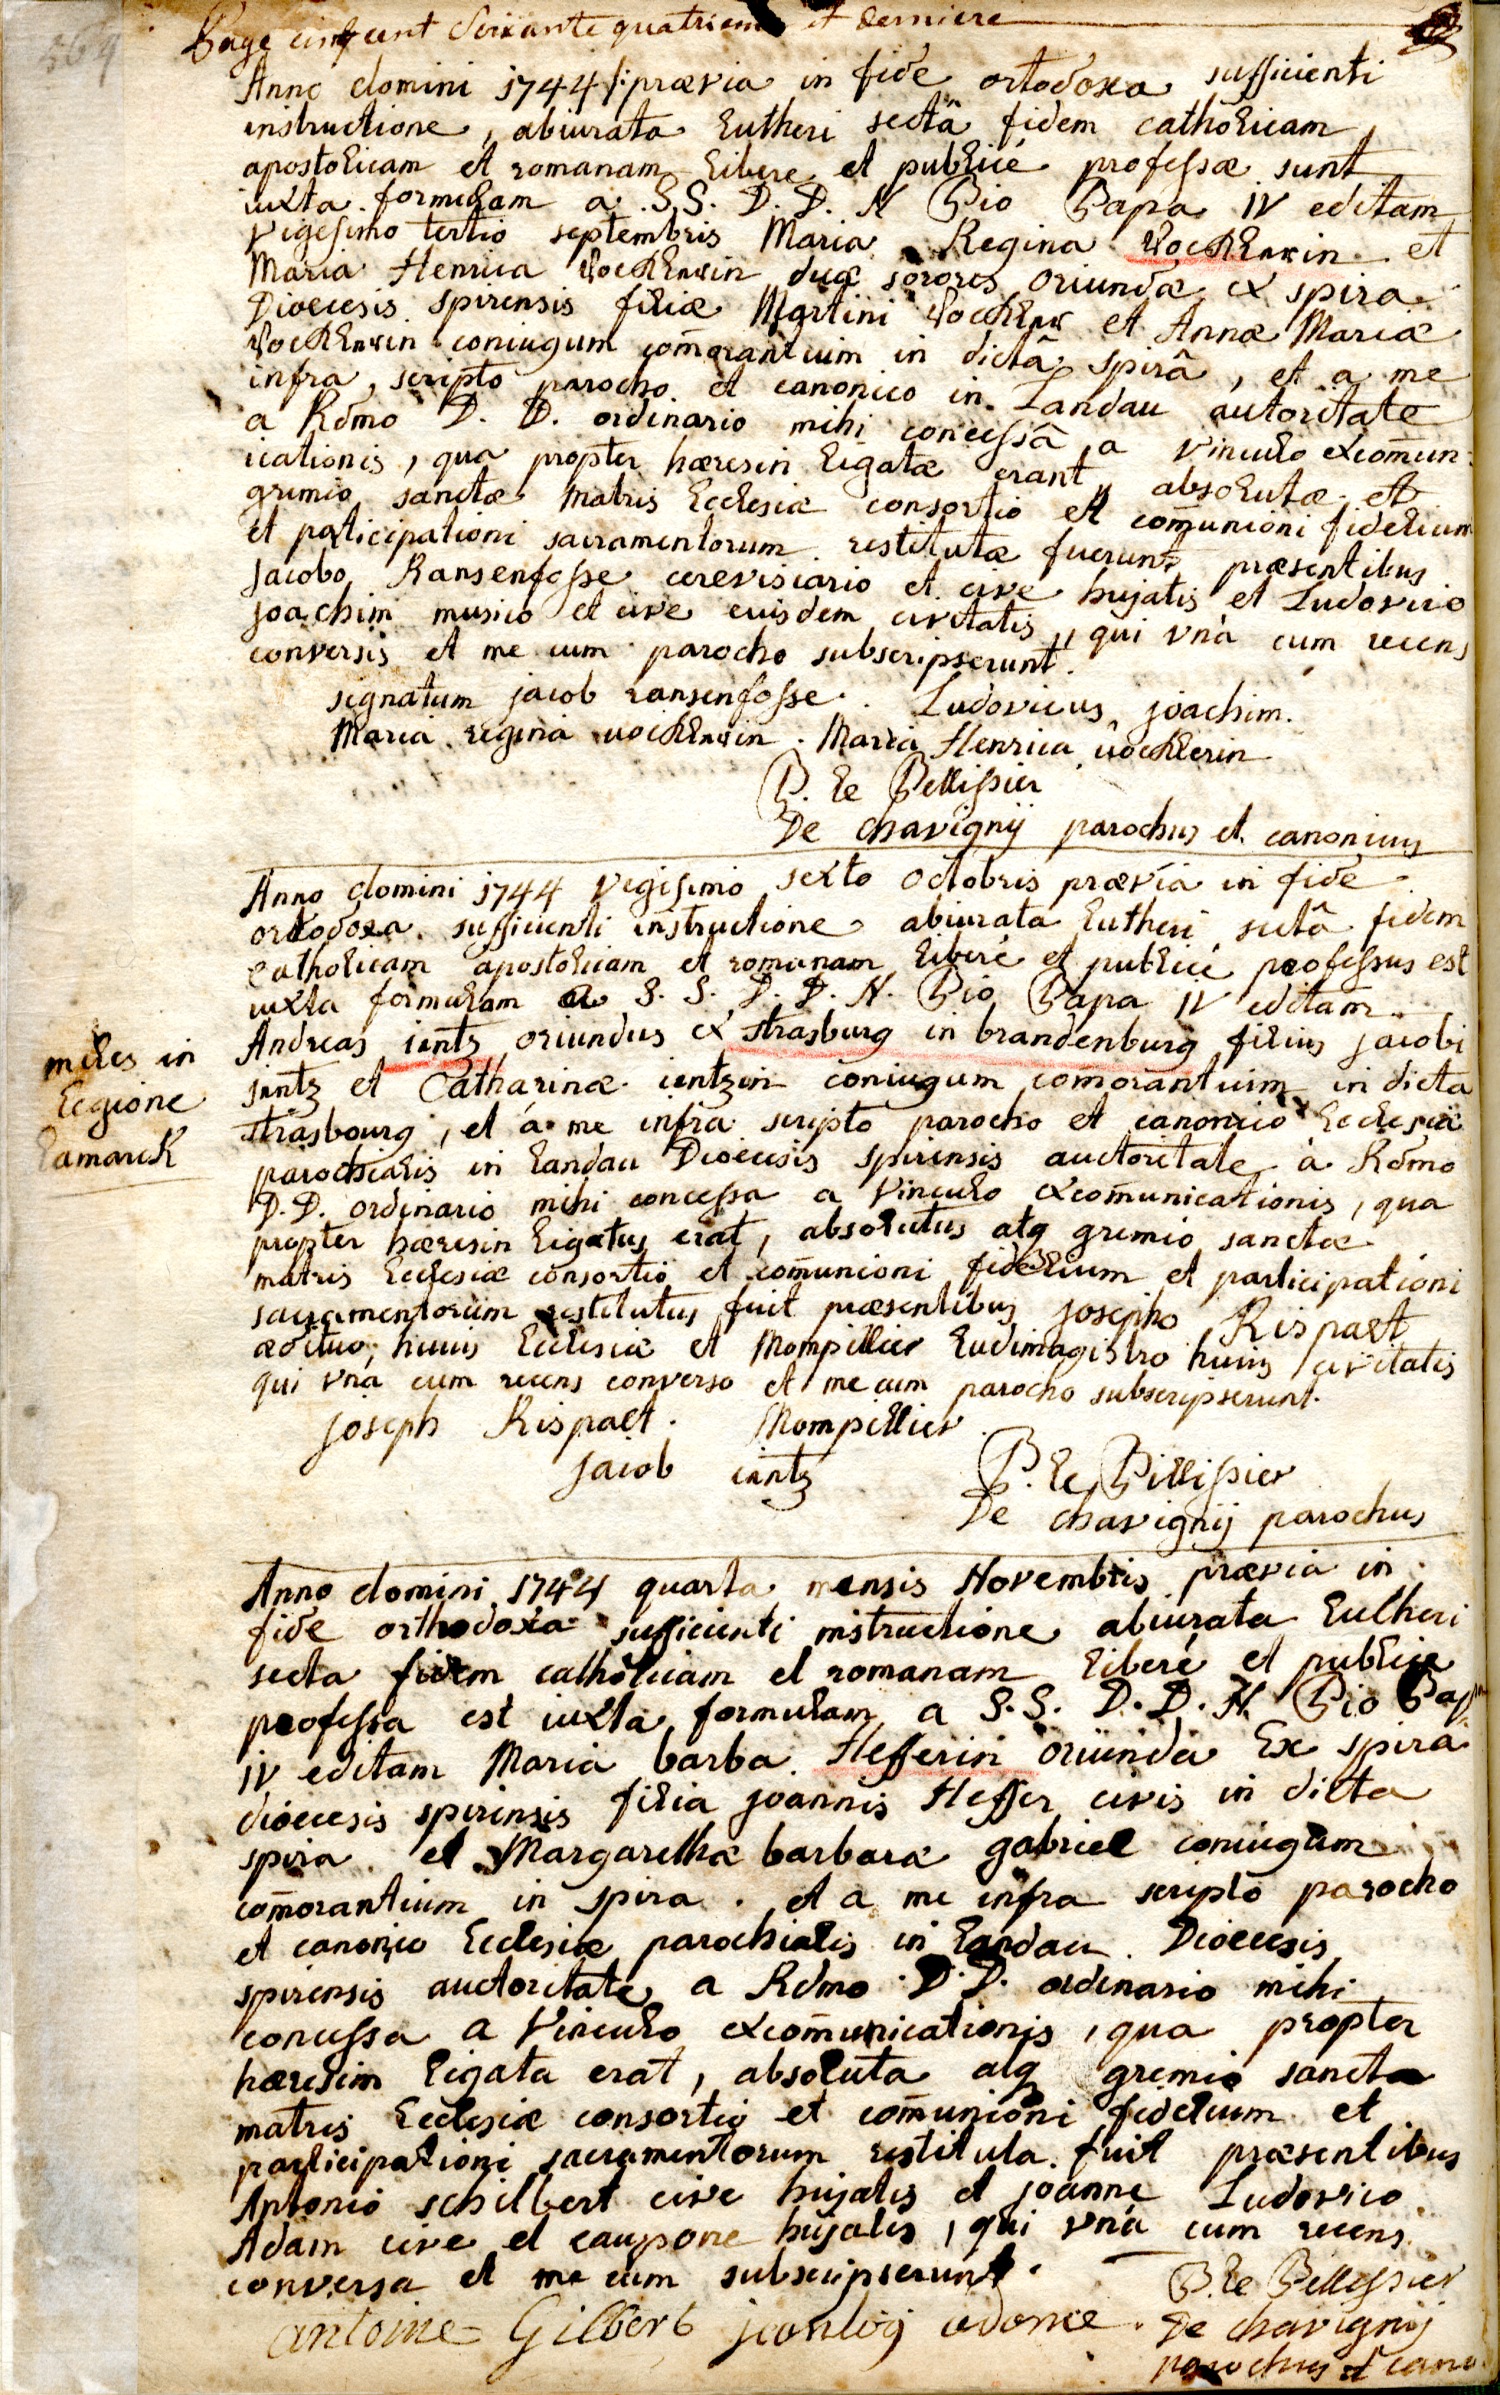 564
Page cinq cent Soixante quatrieme et derniere
Anno domini 1744 /: prævia in fide ortodoxa sufficienti
instructione, abiurata Lutheri sectâ fidem catholicam,
apostolicam et romanam libere et publicé professæ sunt
iuxta formulam a S.S. D. D. N Pio Papa IV editam
vigesimo tertio septembris Maria Regina et
Maria Henrica duæ sorores oriundæ ex spira
Dioecesis spirensis filiæ Martini et Annæ Mariæ
coniugum com̄orantium in dictâ spirâ, et a me
infra scripto parocho et canonico in Landau autoritate
a Rd̄mo D. D. ordinario mihi concessâ a vinculo excom̄un:
icationis, qua propter hæresin ligatæ erant, absolutæ et
gremio sanctæ Matris Ecclesiæ consortio et com̄unioni fidelium
et participationi sacramentorum restitutæ fuerunt præsentibus
jacobo Ransenfosse cerevisiario et cive hujatis et Ludovico
joachim musico et cive euisdem civitatis, qui vnà cum recens
conversis et me cum parocho subscripserunt.
signatum jacob ransenfosse. Ludovicus joachim.
Maria regina . Maria Henrica vocklerin
P. le Pellissier
De chavignÿ parochus et canonicus
Anno domini 1744 vigesimo sexto octobris prævia in fide
ortodoxa sufficienti instructione abiurata Lutheri sectâ fidem
catholicam apostolicam et romanam liberé et publicé professus est
iuxta formulam a S. S. D. D. N. Pio Papa IV editam
Andreas ientz oriundus ex strasburg in brandenburg filius jacobi
jentz et Catharinæ ientzin coniugum com̄orantium in dicta
strasbourg, et á me infra scripto parocho et canonico Ecclesiæ
parochialis in landau Dioecesis spirensis auctoritate à Rd̄mo
D. D. ordinario mihi concessa a vinculo excom̄unicationis, qua
propter hæresin ligatus erat, absolutus atq gremio sanctæ
matris Ecclesiæ consortio et com̄unioni fidelium et participationi
sacramentorum restitutus fuit præsentibus josepho Rispalt
ædituo huius Ecclesiæ et Mompillier ludimagistro huius civitatis
qui vnà cum recens converso et me cum parocho subscripserunt.
joseph Rispalt. Mompillier
jacob ientz P. le Pillissier
De chavignÿ parochus
miles in
legione
lamarck
Anno domini 1744 quarta mensis Novembris prævia in
fide orthodoxa sufficienti instructione abiurata Lutheri
secta fidem catholicam et romanam liberé et publicé
professa est iuxta formulam a S. S. D. D. N. Pio Papa
IV editam Maria barba. Hefferin oriunda Ex spira
dioecesis spirensis filia joannis Heffer civis in dicta
spira et Margarethæ barbaræ gabriel coniugum
com̄orantium in spira. et a me infra scripto parocho
et canonico Ecclesiæ parochialis in landau Dioecesis
spirensis auctoritate a Rd̄mo D. D. ordinario mihi
concessa a vinculo excom̄unicationis, qua propter
hæresim ligata erat, absoluta atq gremio sanctæ
matris Ecclesiæ consortio et com̄unioni fidelium et
participationi sacramentorum restituta fuit præsentibus
Antonio schilbert cive hujatis et joanne Ludovico
Adam cive et caupone hujatis, qui vnà cum recens
conversa et me cum subscripserunt.
antoine Gilbert
P. le Pellissier
De chavignÿ
parochus et cano